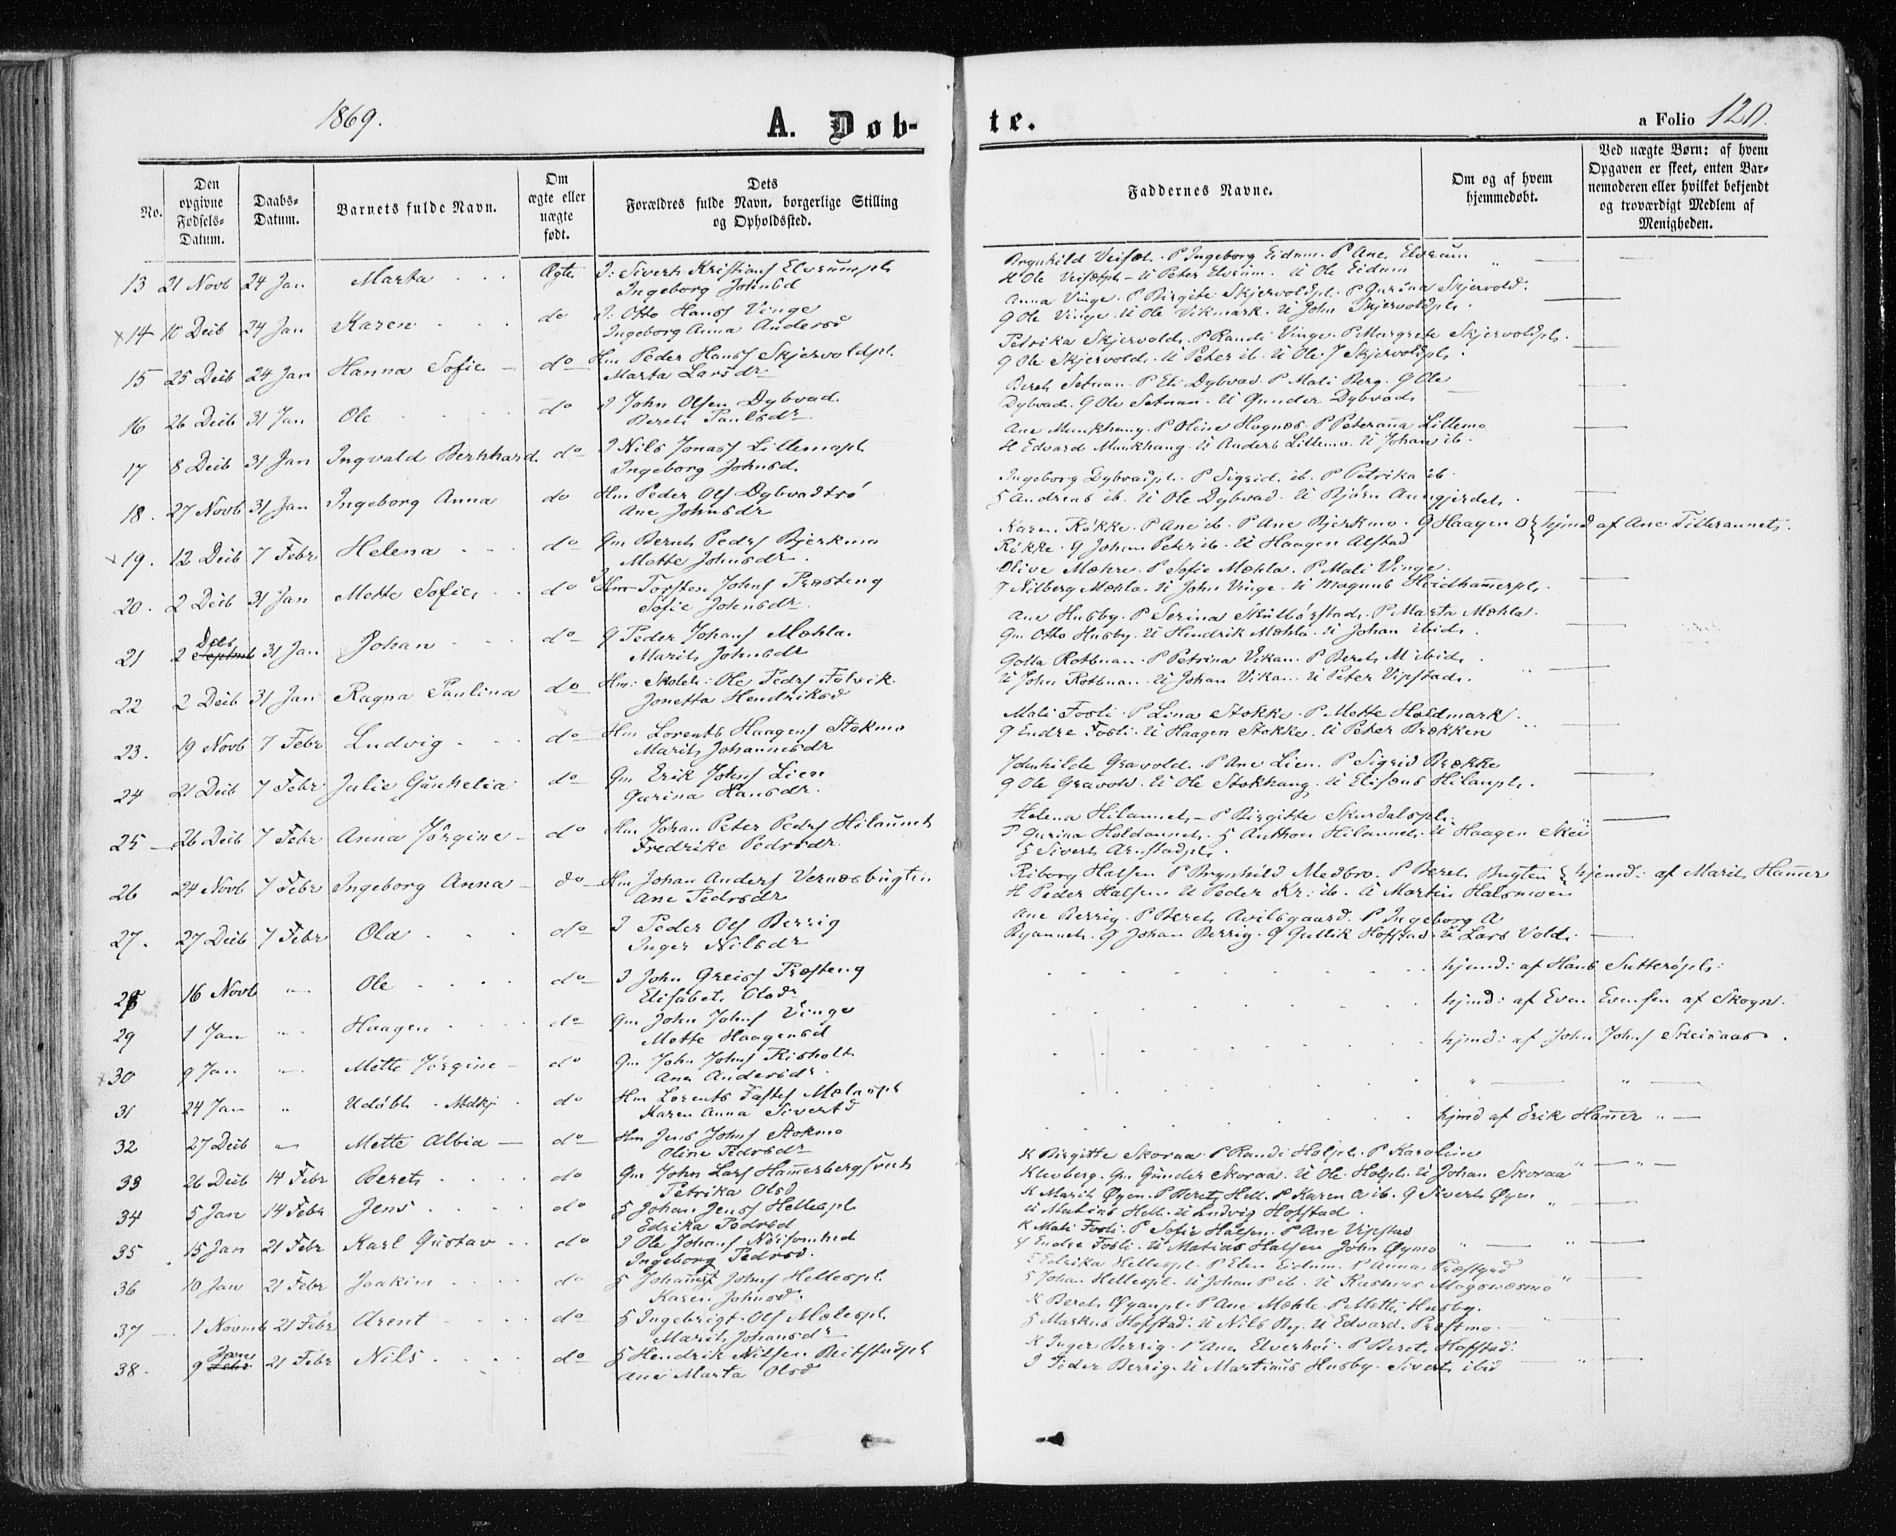 1869.
A. Døb-
te.
a Folio 120.
No.
Den opgivne Fødsels-Datum.
Daabs-Datum.
Barnets fulde Navn.
Om ægte eller uægte født.
Dets Forældres fulde Navn, borgerlige Stilling og Opholdssted.
Faddernes Navne.
Om og af hvem hjemmedøbt.
Ved uægte Børn: af hvem Opgaven er skeet, enten Barnemoderen eller hvilket bekjendt og troværdigt Medlem af Menigheden.
13 21 Novb 24 Jan Marta Ægte I: Sivert Kristians Elvrumpl
Ingeborg Johnsd
Brynhild P Ingeborg Eidum. P Ane Elvrum
H Ole U Peter Elvrum. U Ole Eidum
14 10 Decb 24 Jan Karen do I: Otto Hans Vinge
Ingeborg Anna Andersd
Anna Vinge. P Birgite Skjervoldpl. P Gurina Skjervold.
G Ole Vinge. U Ole Vikmark. U John Skjervoldpl.
15 25 Decb 24 Jan Hanna Sofie do Hm Peder Hans Skjervoldpl.
Marta Larsdr
Petrika Skjervold. P Randi Vinge. P Margrete Skjervoldpl.
G Ole Skjervold. U Peter ib. U Ole J Skjervoldpl.
16 26 Decb 31 Jan Ole do I John Olsen Dybvad
Beret Paulsdr
Beret Setnan. P Eli Dybvad. P Mali Berg. G Ole
Dybvad. G Ole Setnan. U Gunder Dybvad
17 8 Decb 31 Jan Ingvald Bernhard do I Nils Jonas Lillemopl
Ingeborg Johnsd.
Ane Munkhaug. P Oline Hognes. P Peteranna Lillemo
H Edvard Munkhaug. U Anders Lillemo. U Johan ib.
18. 27 Novb 31 Jan Ingeborg Anna do Hm Peder Ols Dybvadtrø
Ane Johnsdr
Ingeborg Dybvadpl. P Sigrid ib. P Petrika ib.
S Andreas ib. U Ole Dybvad. U Bjørn Aungjerdet.
19. 12 Decb 7 Febr Helena do Gm Bernt Peders Bjerkmo
Mette Johnsdr
Karen Røkke. P Ane ib. P Ane Bjerkmo. G Haagen O
Røkke. G Johan Peter ib. U Haagen Alstad
hjmd af Ane Tilleraunet.
20. 2 Decb 31 Jan Mette Sofie do Torsten Johns Præsteng
Sofie Johnsdr.
Olive Mæhre. P Sofie Mæhla. P Mali Vinge.
Nilberg Mæhla. U John Vinge. U Magnus Heidhammerpl.
21 2 Decb 31 Jan Johan do G Peder Johans Mæhla.
Marit Johnsdr
Ane Husby. P Serina P Marta Mæhla.
Gm Otto Husby. U Hendrik Mæhla. U Johan ibid.
22 2 Decb 31 Jan Ragna Paulina do Hm: Skolel: Ole Peders
Jonetta Hendriksd
Golla Rotbnan. P Petrina Vikan. P Beret M ibid.
U John Rotbnan. U Johan Vikan. U Peter Vipstad.
23. 19 Novb 7 Febr Ludvig do Hm Lorents Haagens Stokmo
Marit Johannesdr
Mali Fosli. P Lina Stokke. P Mette Holdmark.
G Endre Fosli. U Haagen Stokke. U Peter Brækken
24 21 Decb 7 Febr Julie Gunhelia do Gm Erik Johns Lien
Gurina Hansdr.
Johnhilde Gravold. P Ane Lien. P Sigrid Brække
G Ole Gravold. U Ole Stokhaug. U Elisæus Hilaupl.
25 26 Decb 7 Febr Anna Jørgine do Hm Johan Peter Peders Hilaunet
Fredrike Pedersdr.
Helena Hilaunet. P Birgitte Skurdalspl.
P Gurina Holdaunet. S Anthon Hilaunet. U Haagen Skei
S Sivert Arnstadpl.
26 24 Novb 7 Febr Ingeborg Anna do Hm Johan Anders Vernæsbugten
Ane Pedersdr
Riborg Halsen P Brynhild Medbro. P Beret Bugten
H Peder Halsen. U Peder Kr: ib. U Martin Halsmoen
hjemd: af Marit Hammer
27. 27 Decb 7 Febr Ola do I Peder Ols Berrig
Inger Nilsdr
Ane Berrig. P Beret Avilsgaard. P Ingeborg A
Ryaunet. G Johan Berrig. G Gullik Hofstad. U Lars Vold.
28 16 Novb Ole do I John Greiss Præsteng
Elisabet Olsdr
hjemd: af Hans Sutterøpl:
29 1 Jan Haagen do Gm John Johns Vinge
Mette Haagensd
hjmd: af Even Evensen af Skogn.
30 9 Jan Mette Jørgine do Gm John Johns Risholt
Ane Andersdr.
hjmd: af John Johns Skeisaas.
31 24 Jan Udøbt. Mdkj do Hm Lorents Fastes
Karen Anna Sivertd
32 27 Decb Mette Albia do Hm Jens Johns Stokmo
Oline Pedersdr
hjmd af Erik Hammer
33 26 Decb 14 Febr Beret do Gm John Lars Hammerberg
Petrika Olsd
K Birgitte Skoraa P Randi Holspl. P Karoline
Klevberg. Gm Gunder Skoraa. U Ole Holspl. U Johan Skoraa
34 5 Jan 14 Febr Jens do S Johan Jens Hellespl
Edrika Pedersd
K Marit Øyen. P Beret Hell. P Karen A ib. G Sivert Øyen
U Matias Hell. U Ludvig Hofstad.
35 15 Jan 21 Febr Karl Gustav do I Ole Johans
Ingeborg Pedersd.
K Mali Fosli. P Sofie Halsen. P Ane Vipstad
G Endre Fosli. U Matias Halsen John Øymo
36 10 Jan 21 Febr Joakim do S Johannes Johns Hellespl.
Karen Johnsd.
Edrika Hellespl. P Elen Eidum. P Anna Præstgrd
S Johan Hellespl. U Johan P ib. U Rasmus Mogsnæsmo
37 1 Novmb 21 Febr Arent do S Ingebrigt Ols Mælespl.
Marit Johansdr
K Beret Øyanpl. P Ane Mæhle. P Mette Husby.
S Markus Hofstad. U Nils By. U Edvard. Præstmo.
38. 9 Janr 21 Febr Nils do S Hendrik Nilsen Reitstadpl
Ane Marta Olsd
K Inger Berrig. P Ane Elverhøi. P Beret Hofstad.
I Peder Berrig. U Martinus Husby. Sivert ibid